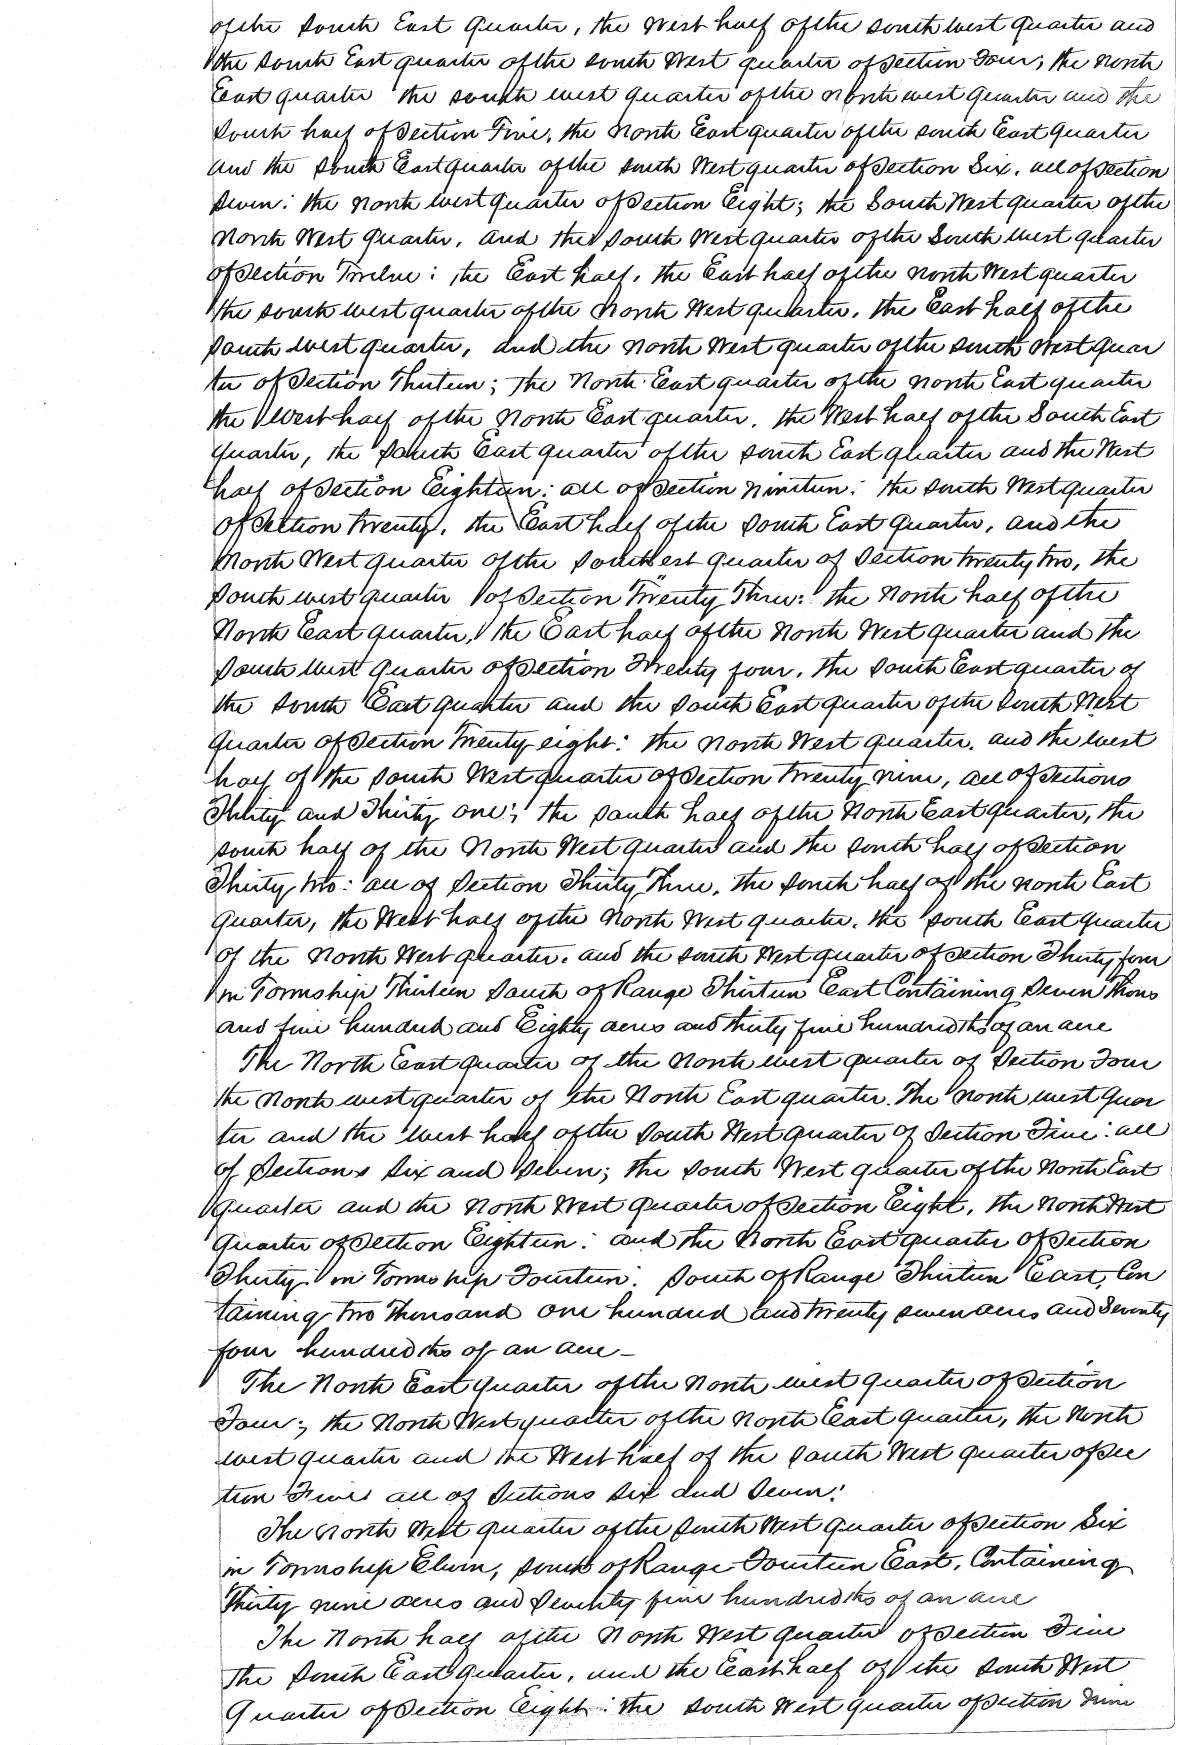 of the South East quarter, the West half of the south west quarter and
the South East quarter of the South West quarter of Section Four; the North
East quarter the south west quarter of the North west quarter and the
South half of Section Five, the North East quarter of the South East Quarter
and the South East quarter of the South West quarter of Section Six, all of Section
Seven: the North West quarter of Section Eight; the South West quarter of the
North West quarter, and the South West quarter of the South West quarter
of Section Twelve: the East half, the East half of the North West quarter
the south west quarter of the North West quarter, the East half of the
South west quarter, and the North West quarter of the South West Quar
ter of Section Thirteen; the North East quarter of the North East quarter
the West half of the North East quarter, the West half of the South East
quarter, the South East quarter of the South East quarter and the West
half of Section Eighteen: all of Section Nineteen: the South West quarter
of Section Twenty, the East half of the South East Quarter, and the
North West quarter of the quarter of Section Twenty two, the
South west quarter of Section Twenty Three: the North half of the
North East quarter, the East half of the North West quarter and the
South West quarter of Section Twenty four, the South East quarter of
the South East quarter and the South East quarter of the South West
Quarter of Section Twenty eight: the North West quarter, and the West
half of the South West quarter of Section Twenty nine, all of Sections
Thirty and Thirty one; the South half of the North East Quarter, the
South half of the North West quarter and the South half of Section
Thirty two: all of Section Thirty Three, the South half of the North East
quarter, the West half of the North West quarter, the South East quarter
of the North West quarter, and the South West quarter of Section Thirty four
in Township Thirteen South of Range Thirteen East Containing Seven Thous
and five hundred and Eighty acres and thirty five hundredths of an acre
The North East quarter of the North west quarter of Section Four
the North west quarter of the North East quarter. The North west Quar
ter and the West half of the South West quarter of Section Five: all
of Sections Six and Seven; the South West quarter of the North East
quarter and the North West Quarter of Section Eight, the North West
Quarter of Section Eighteen: and the North East quarter of Section
Thirty in Township Fourteen: South of Range Thirteen East, Con
taining two Thousand one hundred and twenty seven acres and Seventy
four hundredths of an acre —
The North East quarter of the North west quarter of Section
Four; the North West quarter of the North East quarter, the North
west quarter and the West half of the South West quarter of Sec
tion Five: all of Sections Six and Seven:
The North West quarter of the South West quarter of Section Six
in Township South of Range Fourteen East, Containing
Thirty nine acres and Seventy five hundredths of an acre
The North half of the North West Quarter of Section Five
The South East quarter, and the East half of the South West
Quarter of Section Eight: the South West quarter of Section Nine